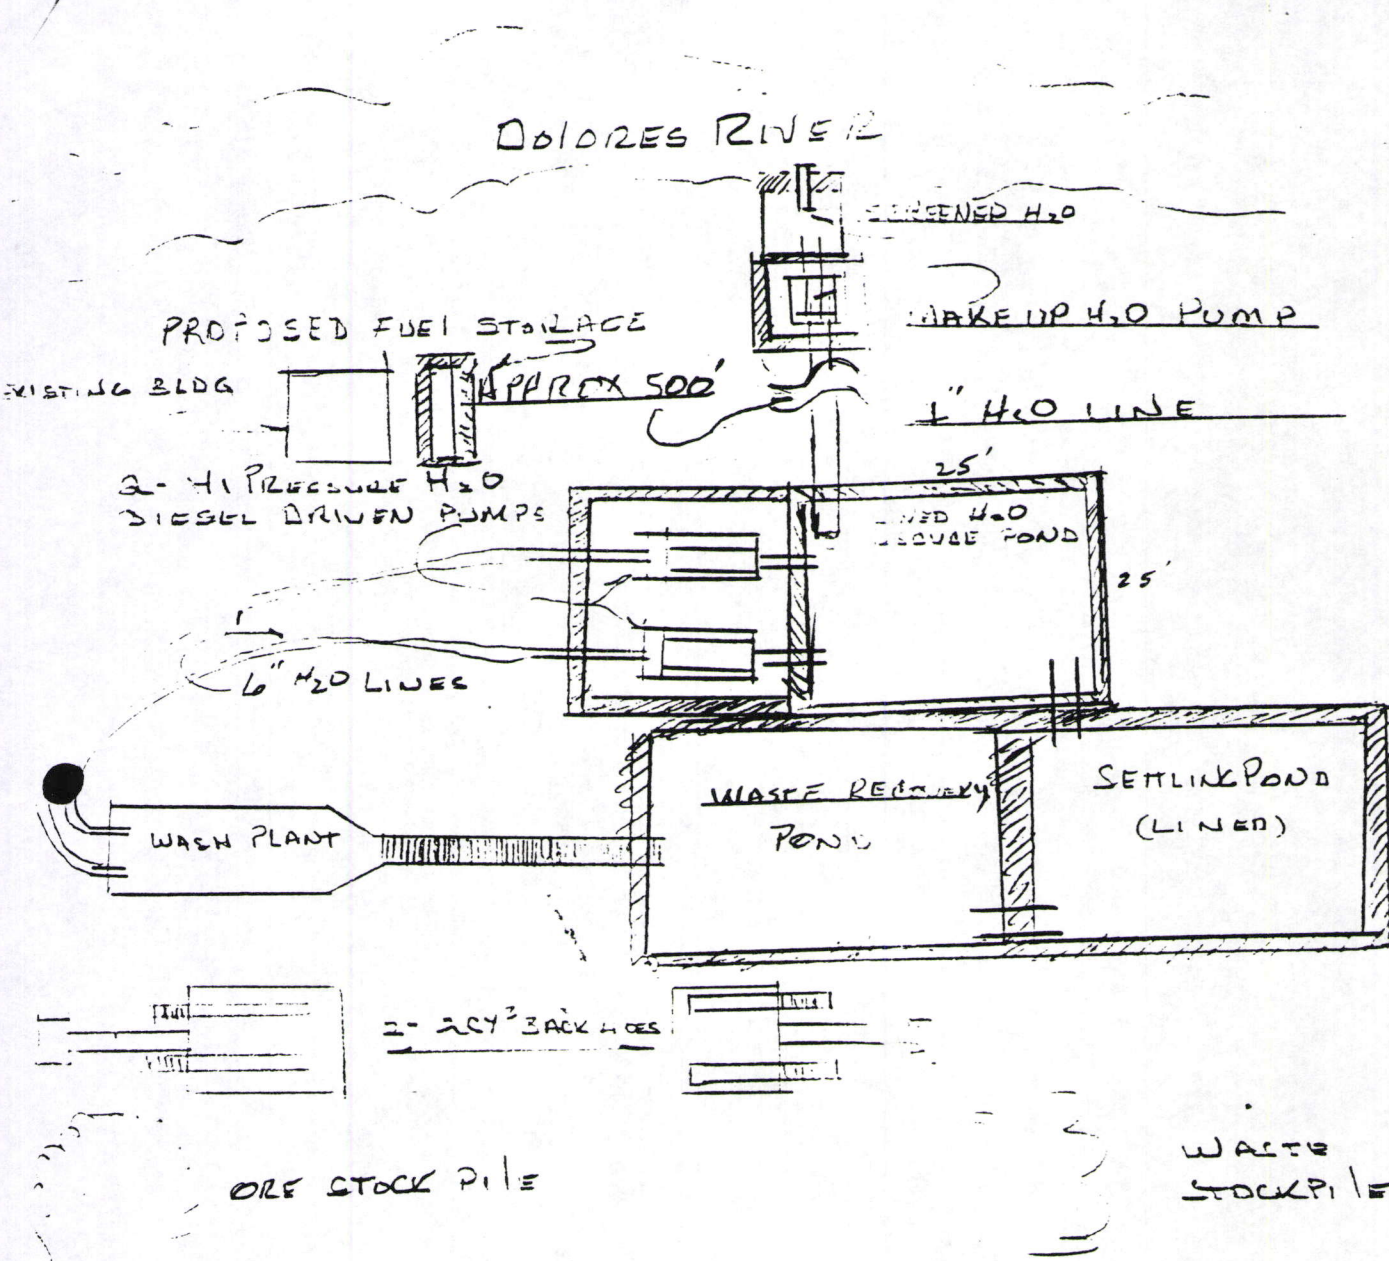 DOLORES RIVER
SCREENED H2O
MAKE UP H2O PUMP
PROPOSED FUEL STORAGE
EXISTING BLDG
APPROX 500'
1" H2O LINE
2- HI PRESSURE H2O
DIESEL DRIVEN PUMPS
25'
LINED H2O
POND
25'
6" H2O LINES
WASH PLANT
WASTE RECOVERY
POND
SETTLING POND
(LINED)
2- 2CY3 BACK HOES
ORE STOCK PILE
WASTE
STOCKPILE